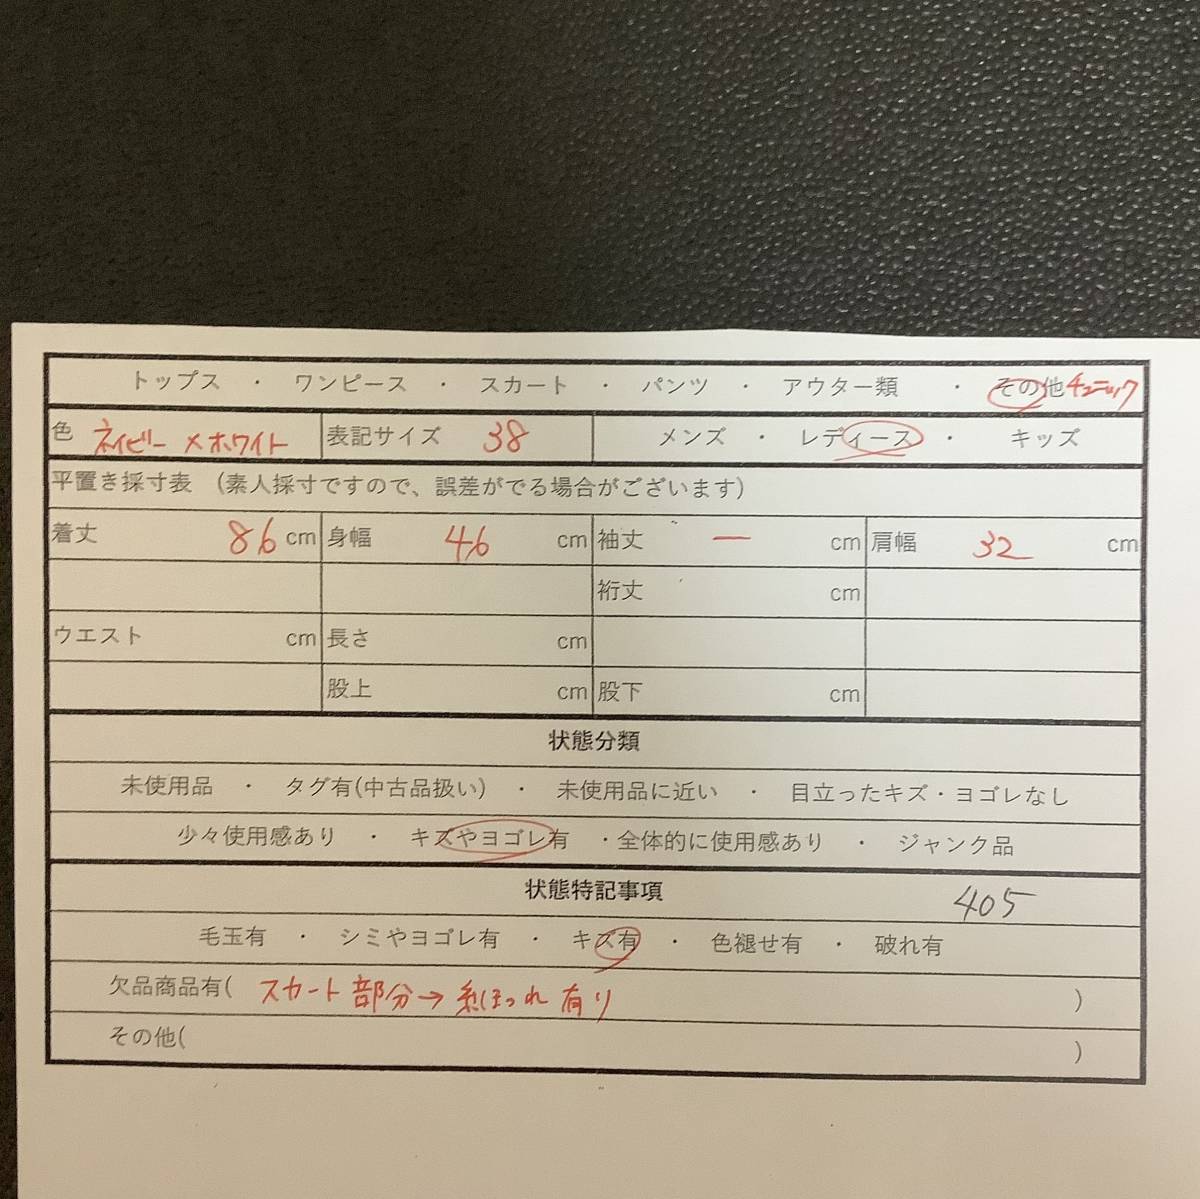 トップス ・ ワンピース ・ スカート ・ パンツ ・ アウター類 ・ その他 チュニック
色 ネイビー×ホワイト 表記サイズ 38 メンズ ・ レディース ・ キッズ
平置き採寸表 (素人採寸ですので、誤差がでる場合がございます)
着丈 86 cm 身幅 46 cm 袖丈 ー cm 肩幅 32 cm
裄丈 cm
ウエスト cm 長さ cm
股上 cm 股下 cm
状態分類
未使用品 ・ タグ有(中古品扱い) ・ 未使用品に近い ・ 目立ったキズ・ヨゴレなし
少々使用感あり ・ キズやヨゴレ有 ・全体的に使用感あり ・ ジャンク品
状態特記事項 405
毛玉有 ・ シミやヨゴレ有 ・ キズ有 ・ 色褪せ有 ・ 破れ有
欠品商品有( スカート部分→糸ほつれ有り )
その他( )